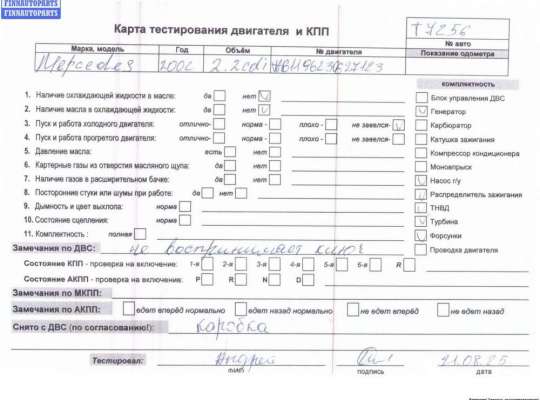 FINNAUTOPARTS
FINNAUTOPARTS
Карта тестирования двигателя и КПП
T7256
№ авто
Марка, модель Год Объём № двигателя Показание одометра
Mercedes 2006 2.2cdi
КОМПЛЕКТНОСТЬ
1. Наличие охлаждающей жидкости в масле: да нет V
Блок управления ДВС
2. Наличие масла в охлаждающей жидкости: да нет V
V Генератор
3. Пуск и работа холодного двигателя: отлично- норма - плохо - не завелся- V
Карбюратор
4. Пуск и работа прогретого двигателя: отлично- норма - плохо - не завелся-
Катушка зажигания
5. Давление масла: есть нет
Компрессор кондиционера
6. Картерные газы из отверстия масляного щупа: да нет
Моновпрыск
7. Наличие газов в расширительном бачке: да нет
V Насос г/у
8. Посторонние стуки или шумы при работе: да нет
Распределитель зажигания
9. Дымность и цвет выхлопа: норма
ТНВД
10. Состояние сцепления: норма
V Турбина
11. Комплектность : полная
V Форсунки
Замечания по ДВС: не воспринимает ключ
Проводка двигателя
Состояние КПП - проверка на включение: 1-я 2-я 3-я 4-я 5-я 6-я R
Состояние АКПП - проверка на включение: P R N D
Замечания по МКПП:
Замечания по АКПП: едет вперёд нормально едет назад нормально не едет вперёд не едет назад
Снято с ДВС (по согласованию!): коробка
Тестировал: Андрей 21.08.25
ФИО подпись дата